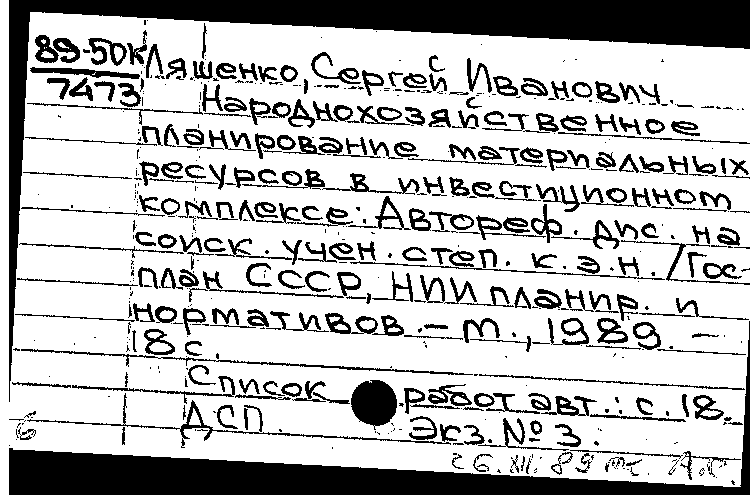 89-50К Ляшенко, Сергей Иванович.
7473 Народнохозяйственное
планирование материальных
ресурсов в инвестиционном
комплексе: Автореф. дис. на
соиск. учен. степ. к.э.н. /Гос-
план СССР, НИИ планир. и
нормативов. – М., 1989. –
18 с.
Список работ авт.: с. 18.
ДСП. Экз. № 3.
6
26.XII.89 А.С.